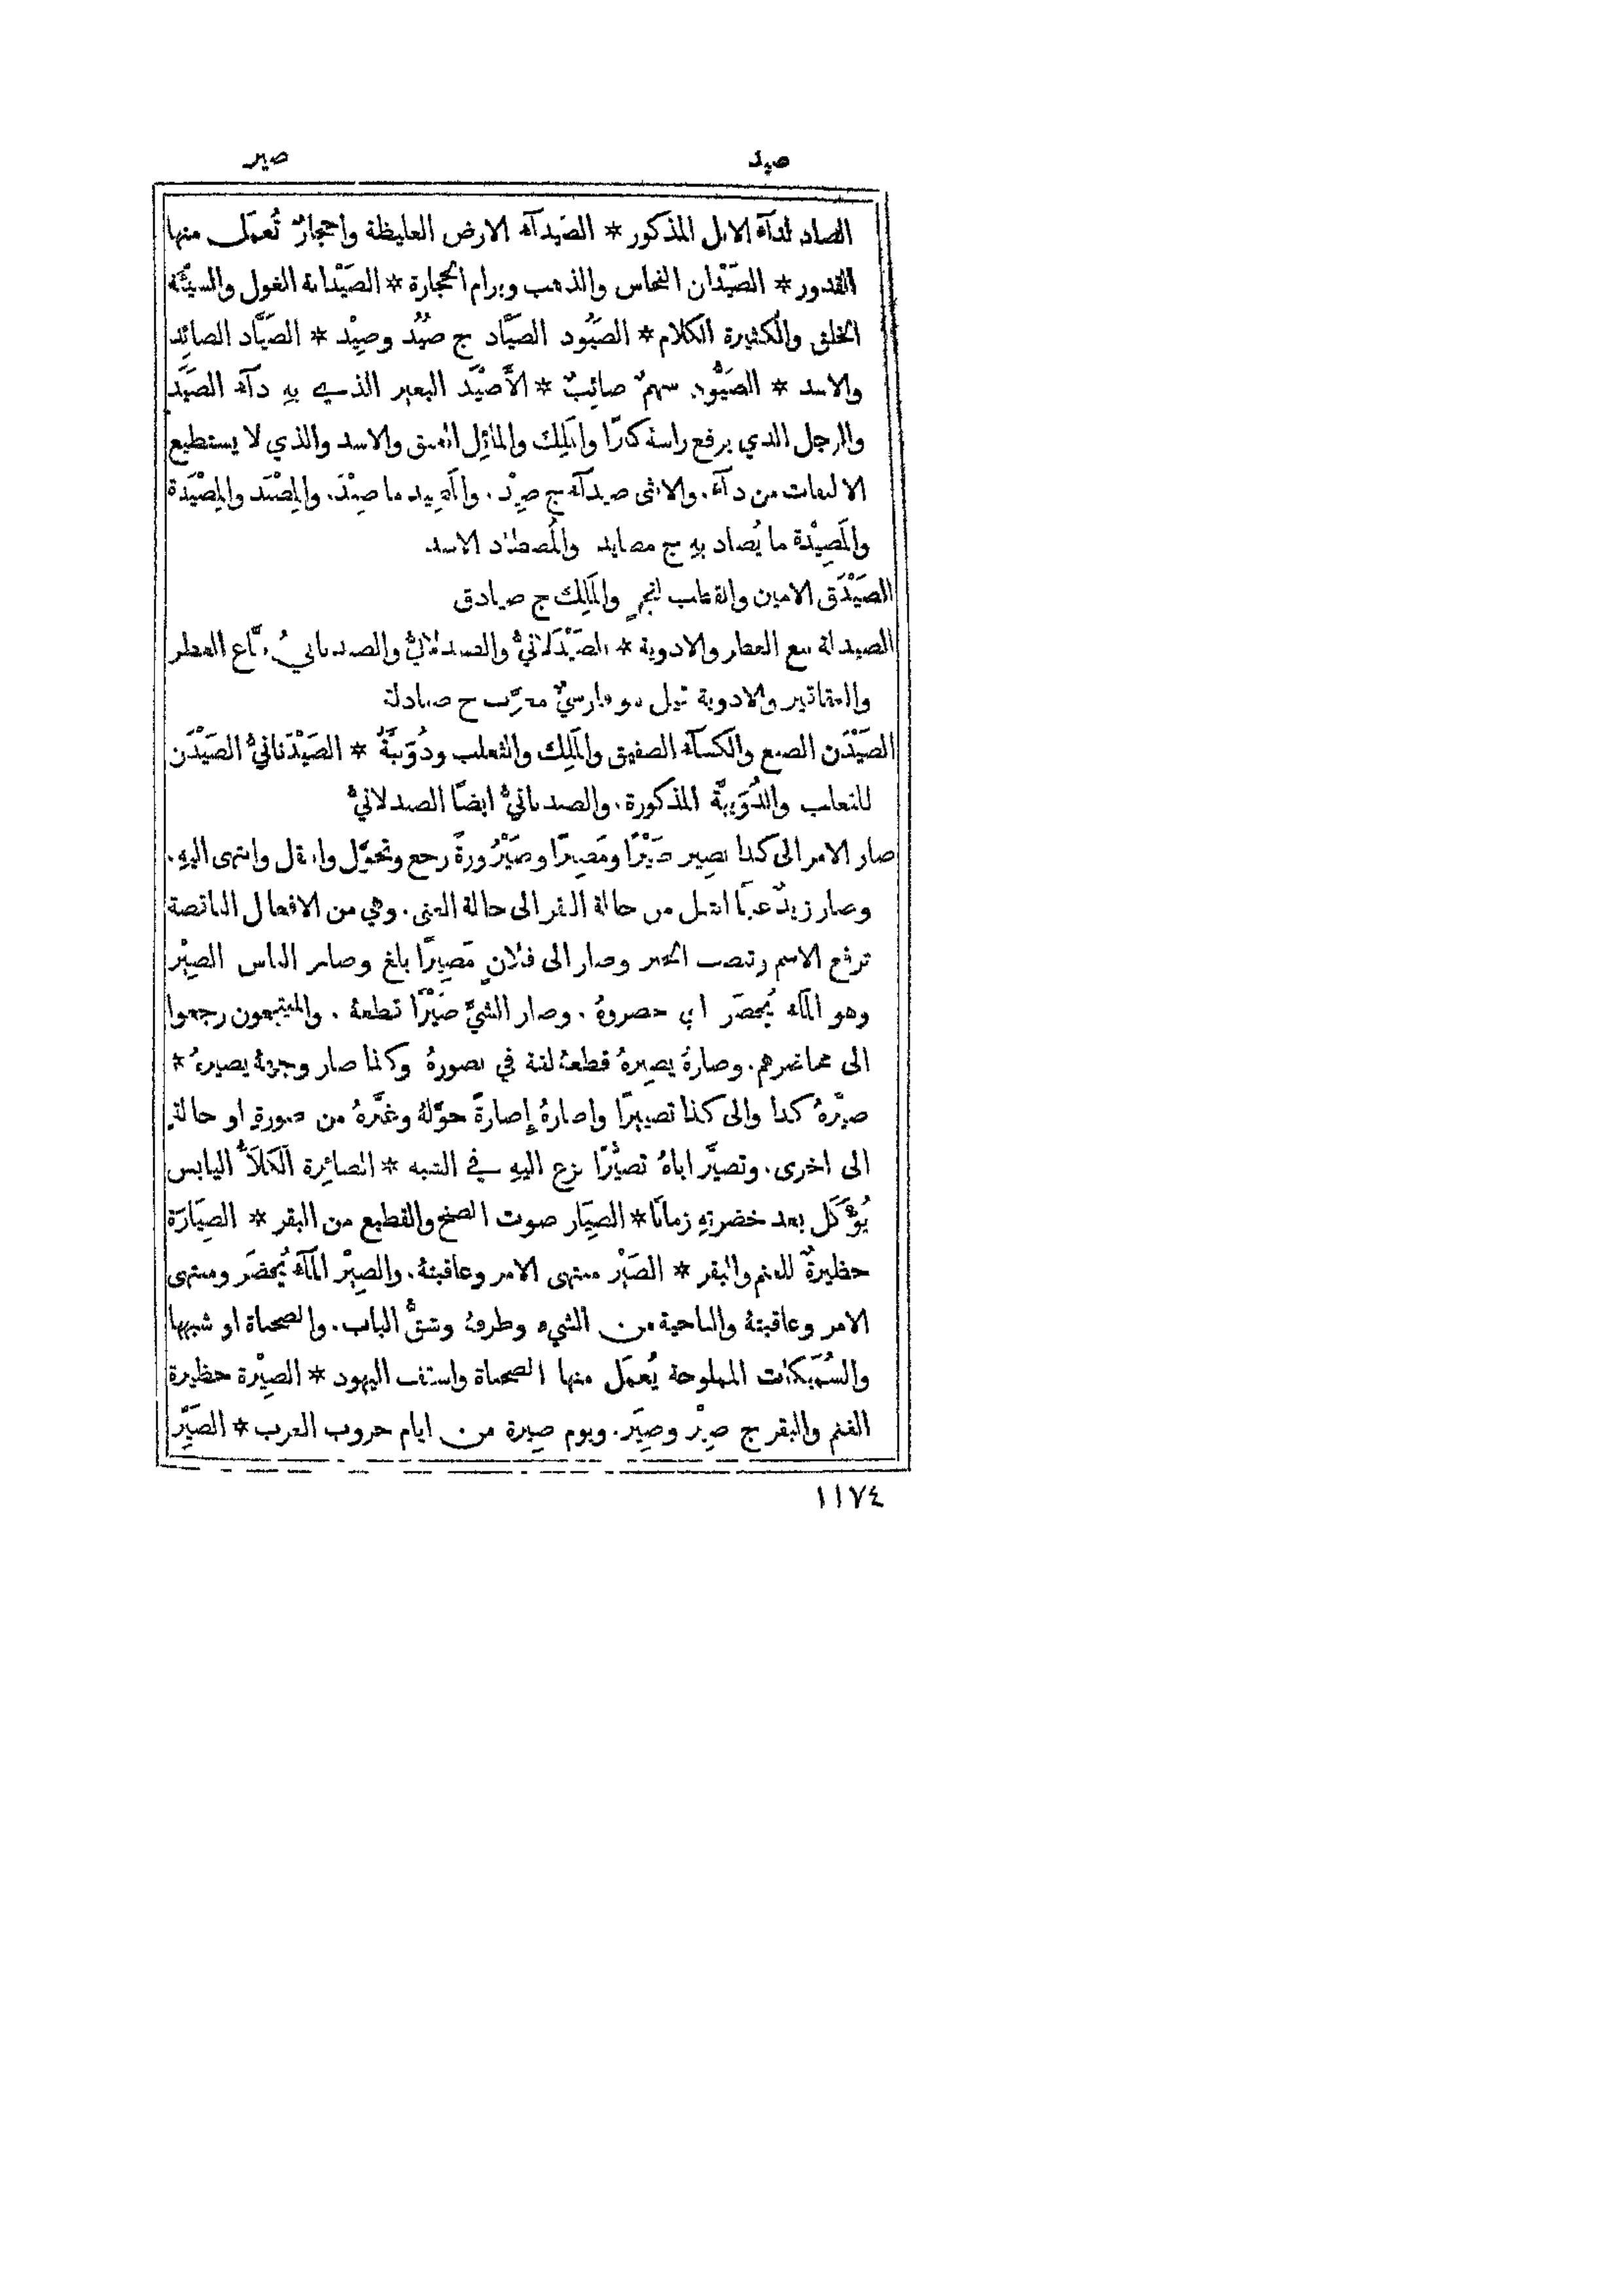 صيد
صير
الصاد لدآء الابل المذكور * الصَيْدآء الارض الغليظة واحجارٌ تُعمَل منها
القدور * الصَيْدَان النحاس والذهب وبرام الحجارة * الصَيْدَانة الغول والسيِّئة
الخلق والكثيرة الكلام * الصَيُود الصَيَّاد ج صُيُد وصِيْد * الصَيَّاد الصائِد
والاسد * الصَيُّود سهمٌ صائِبٌ * الأَصْيَد البعير الذي بهِ دآء الصَيَد
والرجل الذي يرفع راسهُ كبرًا والمَلِك والمائِل العنق والاسد والذي لا يستطيع
الالتفات من دآء. والانثى صيدآء ج صِيْد. والمَصِيد ما صِيْدَ. والمِصْيَد والمِصْيَدَة
والمَصِيْدة ما يُصاد بهِ ج مصايد والمُصطاد الاسد
الصَيْدَق الامين والقطب لنجمٍ والمَلِك ج صيادق
الصيدلة بيع العطر والادوية * الصَيْدَلانيُّ والصندلانيُّ والصيدنانيُّ بيَّاع العطر
والعقاقير والادوية قيل هو فارسيٌّ معرَّب ج صيادلة
الصَيْدَن الضبع والكسآء الصفيق والمَلِك والثعلب ودُوَيبَّةٌ * الصَيْدَنانيُّ الصَيْدَن
للثعلب والدُوَيبَّة المذكورة. والصيدنانيُّ ايضًا الصيدلانيُّ
صار الامر الى كذا يصِير صَيْرًا ومَصِيرًا وصَيْرُورةً رجع وتحوَّل وانتقل وانتهى اليهِ.
وصار زيدٌ غنيًّا انتقل من حالة الفقر الى حالة الغنى. وهي من الافعال الناقصة
ترفع الاسم وتنصب الخبر وصار الى فلانٍ مَصِيرًا بلغ وصار الناس الصِيْر
وهو المآء يُحضَر اي حضروهُ. وصار الشيَّ صَيْرًا قطعهُ. والمنتجعون رجعوا
الى محاضرهم. وصارهُ يصِيرهُ قطعهُ لغة في يصورهُ وكذا صار وجههُ يصيرهُ *
صيَّرهُ كذا والى كذا تصييرًا واصارهُ إِصارةً حوَّلهُ وغيَّرهُ من صورةٍ او حالةٍ
الى اخرى. وتصيَّر اباهُ تصيُّرًا نزع اليهِ في الشبه * الصائِرة الكَلَأُ اليابس
يُؤْكَل بعد خضرتهِ زمانًا * الصِيَار صوت الصنج والقطيع من البقر * الصِيَارَة
حظيرةٌ للغنم والبقر * الصَيْر منتهى الامر وعاقبتهُ. والصِيْر المآء يُحضَر ومنتهى
الامر وعاقبتهُ والناحية من الشيء وطرفهُ وشقُّ الباب. والصحناة او شبهها
والسُمَيكات المملوحة يُعمَل منها الصحناة واسقف اليهود * الصِيْرة حظيرة
الغنم والبقر ج صِيْر وصِيَر. ويوم صِيرة من ايام حروب العرب * الصَيِّر
١١٧٤